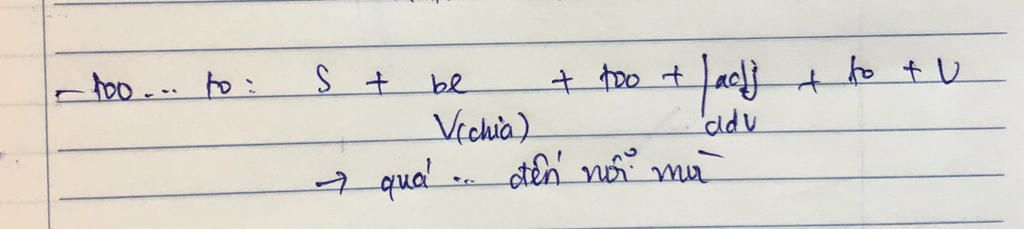 - too... to: S + be + too + | adj + to + V
V(chia) adv
→ quá ... đến nỗi mà